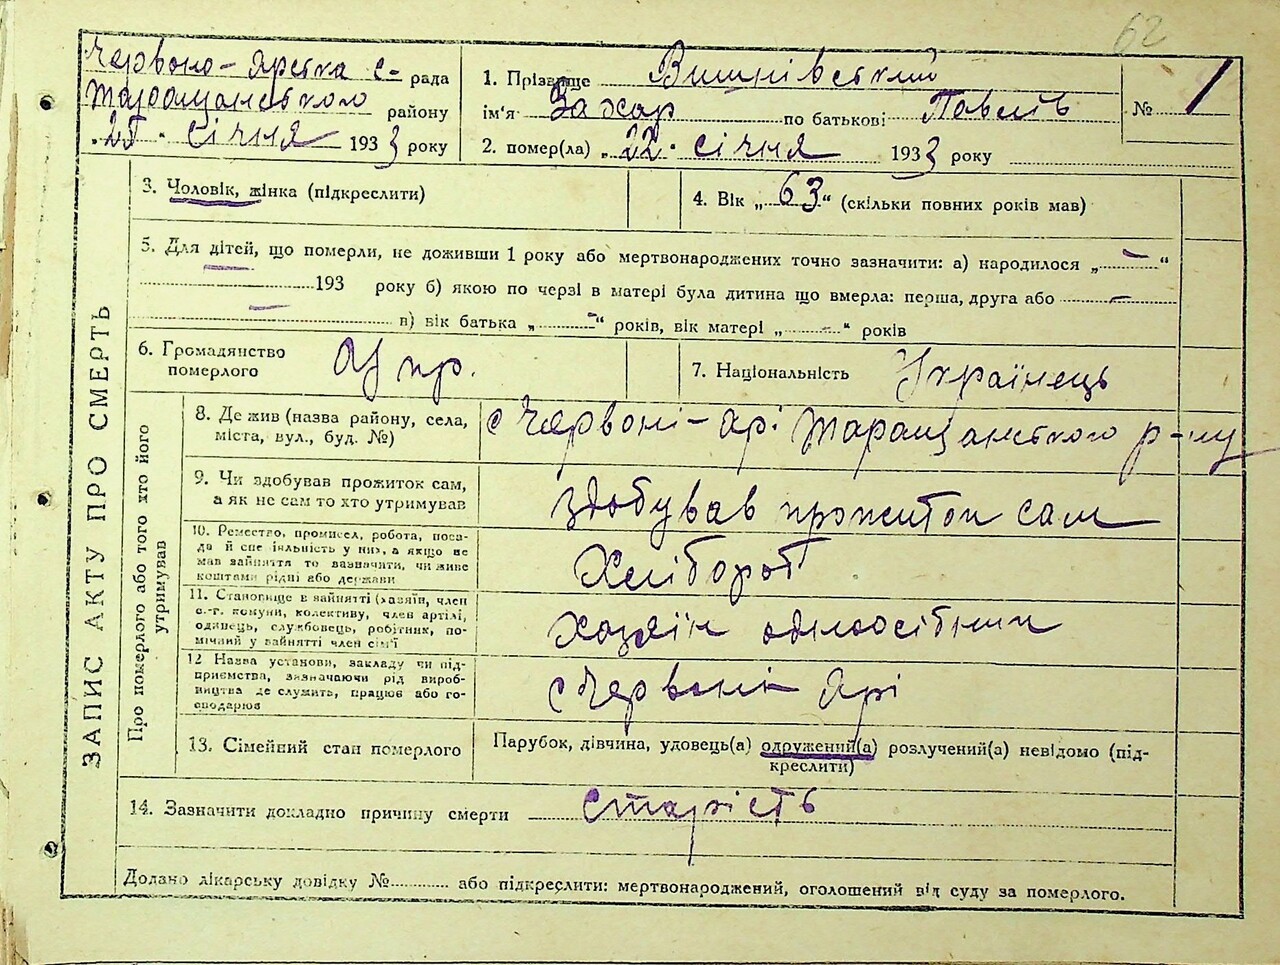 62
Червоно-Ярська с-рада
Таращанського району
„25" січня 1933 року
1. Прізвище Вишнівський
ім'я Захар по батькові Павлів
№ 1
2. помер(ла) „22" січня 1933 року
3. Чоловік, жінка (підкреслити)
4. Вік „63" (скільки повних років мав)
5. Для дітей, що померли, не доживши 1 року або мертвонароджених точно зазначити: а) народилося „ — "
193 року б) якою по черзі в матері була дитина що вмерла: перша, друга або —
— в) вік батька „ - " років, вік матері „ - " років
6. Громадянство
померлого Укр.
7. Національність Українець
ЗАПИС АКТУ ПРО СМЕРТЬ
Про померлого або того хто його
утримував
8. Де жив (назва району, села,
міста, вул., буд. №)
с Червоні-Ярі Таращанського р-ну
9. Чи здобував прожиток сам,
а як не сам то хто утримував
здобував прожиток сам
10. Ремество, промисел, робота, поса-
да й спеціяльність у них, а якщо не
мав зайняття то зазначити, чи живе
коштами рідні або держави
Хлібороб
11. Становище в зайнятті (хазяїн, член
с.-г. комуни, колективу, член артілі,
одинець, службовець, робітник, по-
мічний у зайнятті член сім'ї
хозяїн одноосібник
12 Назва установи, закладу чи під-
приємства, зазначаючи рід вироб-
ництва де служить, працює або го-
сподарює
с Червоні Ярі
13. Сімейний стан померлого
Парубок, дівчина, удовець(а) одружений(а) розлучений(а) невідомо (під-
креслити)
14. Зазначити докладно причину смерти старість
Додано лікарську довідку № або підкреслити: мертвонароджений, оголошений від суду за померлого.